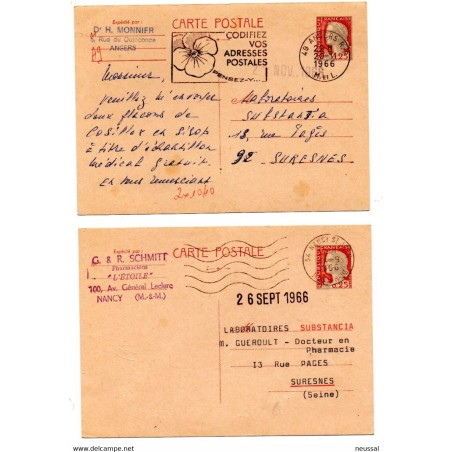 Expédié par :
Dr H. MONNIER
5, Rue du Quinconce
ANGERS
CARTE POSTALE
CODIFIEZ
VOS
ADRESSES
POSTALES
PENSEZ-Y...
49 ANGERS
1966
M. et L.
0.25
Monsieur,
veuillez m'envoyer
deux flacons de
en sirop
à titre d'échantillon
médical gratuit
en vous remerciant
Laboratoires
SUBSTANTIA
13, rue Pagès
92 SURESNES
Expédié par :
G. & R. SCHMITT
Pharmaciens
"L'ÉTOILE"
100, Av. Général Leclerc
NANCY (M.-&-M.)
CARTE POSTALE
0.25
26 SEPT 1966
LABORATOIRES SUBSTANCIA
M. GUEROULT - Docteur en
Pharmacie
13 Rue PAGES
SURESNES
(Seine)
delcampe.net
neussal